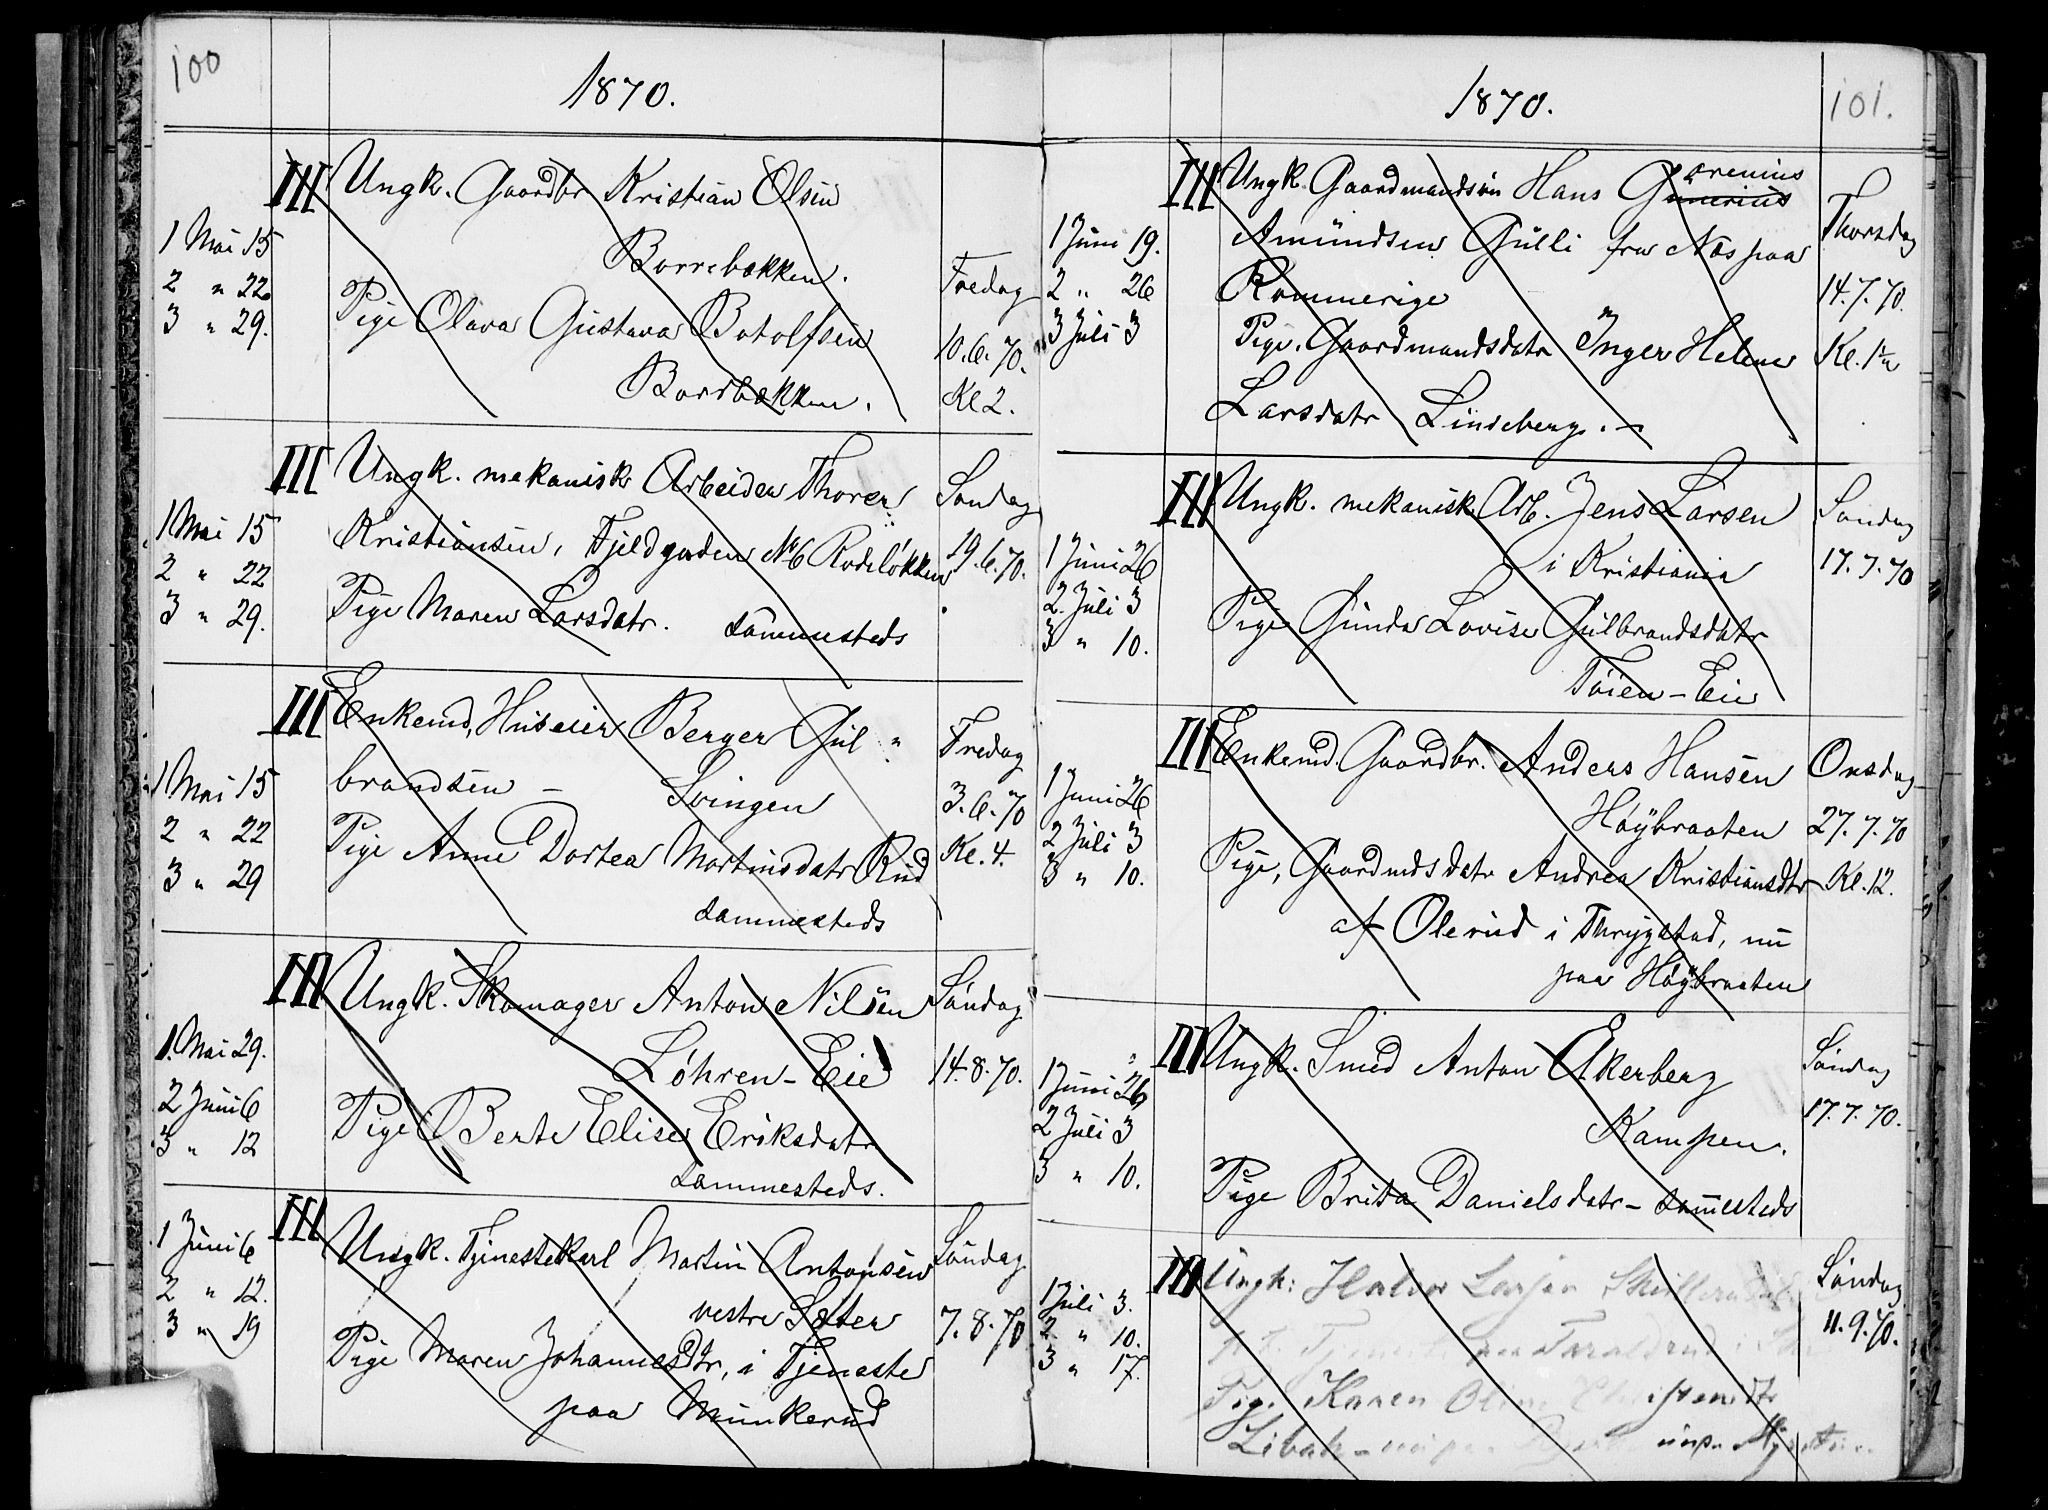 100
1870.
III Ungk. Gaardbr Kristian Olsen
Borrebækken.
1 Mai 15
2 " 22
3 " 29.
Pige Olava Gustava Botolfsen
Borrbækken.
Fredag
10.6.70.
Kl 2.
III Ungk. mekanisk Arbeider Thorer
Kristiansen, Fjeldgaden No 6 Rodeløkken
Pige Maren Larsdatr. sammesteds
1 Mai 15
2 " 22
3 " 29.
Søndag
19.6.70.
III Enkemd, Huseier Berger Gul"
brandsen - Svingen
Pige Anne Dortea Martinsdatr Rud
sammesteds
1 Mai 15
2 " 22
3 " 29
Fredag
3.6.70
Kl. 4.
III Ungk. Skomager Anton Nilsen
Løhren-Eie
Pige Berte Elise Eriksdatr
sammesteds.
1. Mai 29.
2 Juni 6
3 " 12
Søndag
14.8.70.
III Ungk. Tjenestekarl Martin Antonsen
vestre Sæter
Pige Maren JohannesDtr, i Tjeneste
paa Munkerud
1 Juni 6
2 " 12.
3 " 19
Søndag
7.8.70
1870.
101.
III Ungk. Gaardmandsøn Hans Gunerius
orenius
Amundsen Gulli fra Næs paa
Romerige
Pige, Gaardmandsdatr Inger Helene
Larsdatr Lindeberg.-
1 Juni 19.
2 " 26
3 Juli 3
Thorsdag
14.7.70.
Kl. 1
III Ungk. mekanisk Arb. Jens Larsen
i Kristiania
Pige Gunda Lovise Gulbrandsdatr
Tøien-Eie
1 Juni 26
2. Juli 3
3 " 10.
Søndag
17.7.70
III Enkemd. Gaardbr. Anders Hansen
Høybraaten
Pige, Gaardmdsdatr Andrea Kristiansdtr
af Olerud i Thrygstad, nu
paa Høybraaten
1 Juni 26
2 Juli 3
3 " 10.
Onsdag
27.7.70
Kl. 12.
III Ungk. Smed Anton Ekerberg
Kampen.
Pige Brita Danielsdatr - sammesteds
1 Juni 26
2 Juli 3
3 " 10.
Søndag
17.7.70.
III Ungk: Halvor Larsen
Pige Karen Oline
1 Juli 3.
2. " 10.
3 " 17.
Søndag
11.9.70.